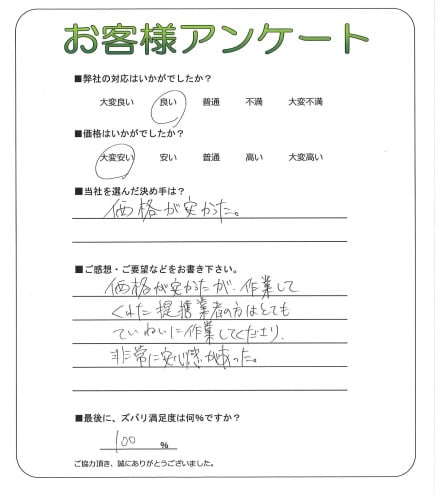 お客様アンケート
■弊社の対応はいかがでしたか？
大変良い 良い 普通 不満 大変不満
■価格はいかがでしたか？
大変安い 安い 普通 高い 大変高い
■当社を選んだ決め手は？
価格が安かった。
■ご感想・ご要望などをお書き下さい。
価格が安かったが、作業して
くれた提携業者の方はとても
ていねいに作業してくださり、
非常に安心感があった。
■最後に、ズバリ満足度は何％ですか？
100 ％
ご協力頂き、誠にありがとうございました。